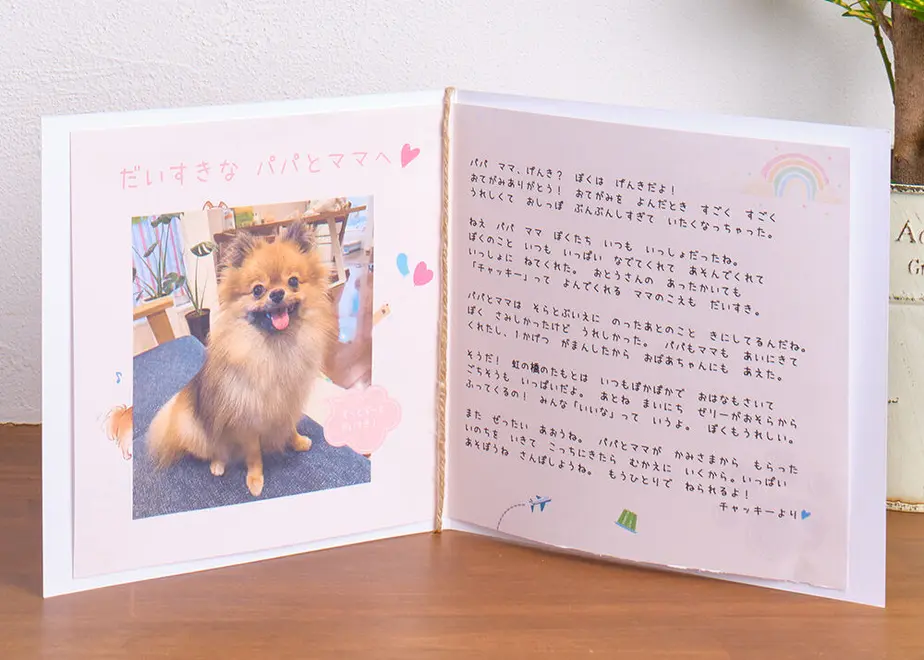 だいすきな パパとママへ
パパ ママ、げんき? ぼくは げんきだよ!
おてがみありがとう! おてがみを よんだとき すごく すごく
うれしくて おしっぽ ぶんぶんしすぎて いたくなっちゃった。
ねえ パパ ママ ぼくたち いつも いっしょだったね。
ぼくのこと いつも いっぱい なでてくれて あそんでくれて
いっしょに ねてくれた。 おとうさんの あったかいても
「チャッキー」って よんでくれる ママのこえも だいすき。
パパとママは そらとぶいえに のったあとのこと きにしてるんだね。
ぼく さみしかったけど うれしかった。 パパもママも あいにきて
くれたし、1かげつ がまんしたから おばあちゃんにも あえた。
そうだ! 虹の橋のたもとは いつもぽかぽかで おはなもさいて
ごちそうも いっぱいだよ。 あとね まいにち ゼリーがおそらから
ふってくるの! みんな「いいな」って いうよ。 ぼくもうれしい。
また ぜったい あおうね。 パパとママが かみさまから もらった
いのちを いきて こっちにきたら むかえに いくから。いっぱい
あそぼうね さんぽしようね。 もうひとりで ねられるよ!
チャッキーより